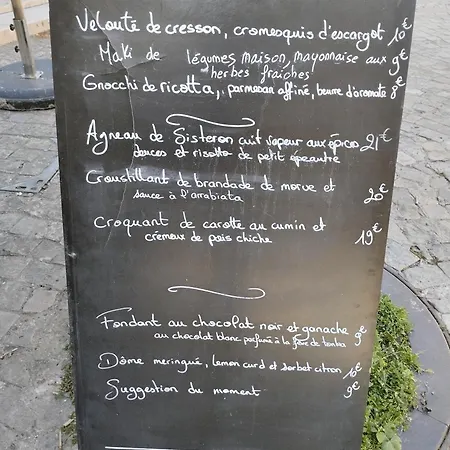 Velouté de cresson, cromesquis d'escargot 10€
Maki de légumes maison, mayonnaise aux 9€
herbes fraiches
Gnocchi de ricotta, parmesan affiné, beurre d'aromate 8€
Agneau de Sisteron cuit vapeur aux épices 21€
douces et risotto de petit épeautre
Croustillant de brandade de morue et
sauce à l'arrabiata 20€
Croquant de carotte au cumin et
crémeux de pois chiche 19€
Fondant au chocolat noir et ganache 9€
au chocolat blanc parfumé à la fève de tonka
Dôme meringué, lemon curd et sorbet citron 10€
Suggestion du moment 9€